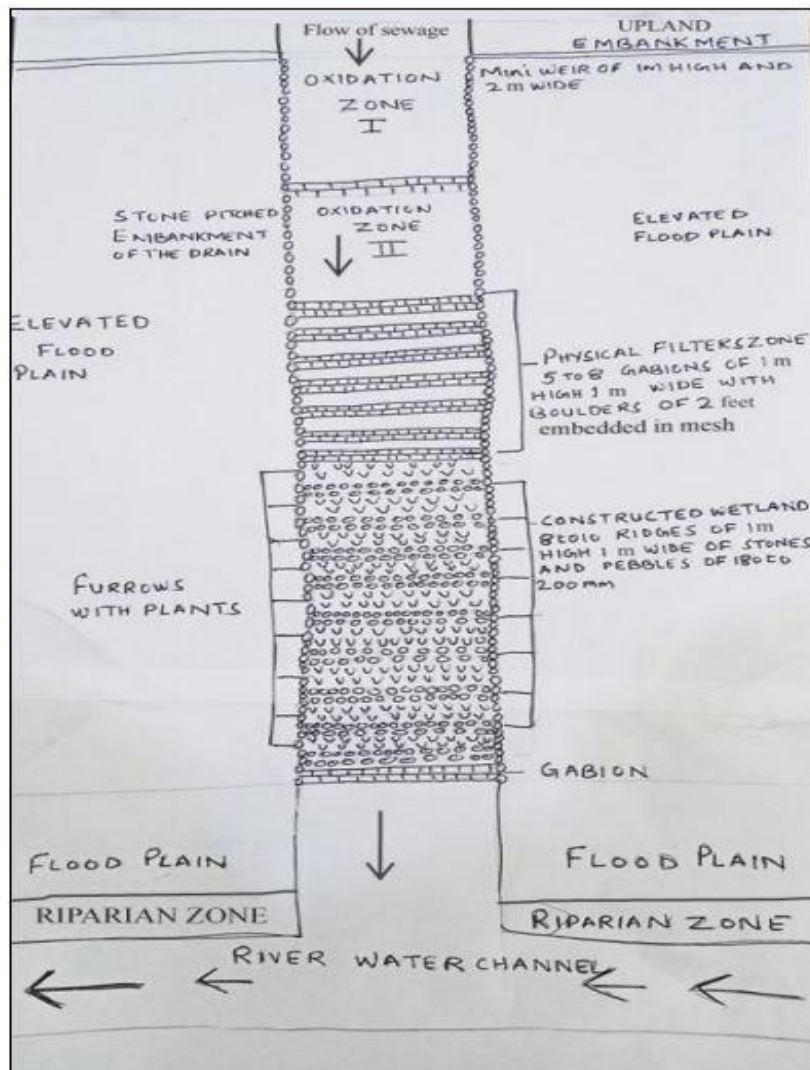 Flow of sewage
UPLAND
EMBANKMENT
OXIDATION
ZONE
I
MINI WEIR OF 1M HIGH AND
2 m WIDE
STONE PITCHED
EMBANKMENT
OF THE DRAIN
OXIDATION
ZONE
II
ELEVATED
FLOOD PLAIN
ELEVATED
FLOOD
PLAIN
PHYSICAL FILTERS ZONE
5 TO 8 GABIONS OF 1 m
HIGH 1 m WIDE WITH
BOULDERS OF 2 feet
embedded in mesh
FURROWS
WITH PLANTS
CONSTRUCTED WETLAND
8 to 10 RIDGES OF 1m
HIGH 1 m WIDE OF STONES
AND PEBBLES OF 180 to
200mm
GABION
FLOOD PLAIN
FLOOD PLAIN
RIPARIAN ZONE
RIPARIAN ZONE
RIVER WATER CHANNEL